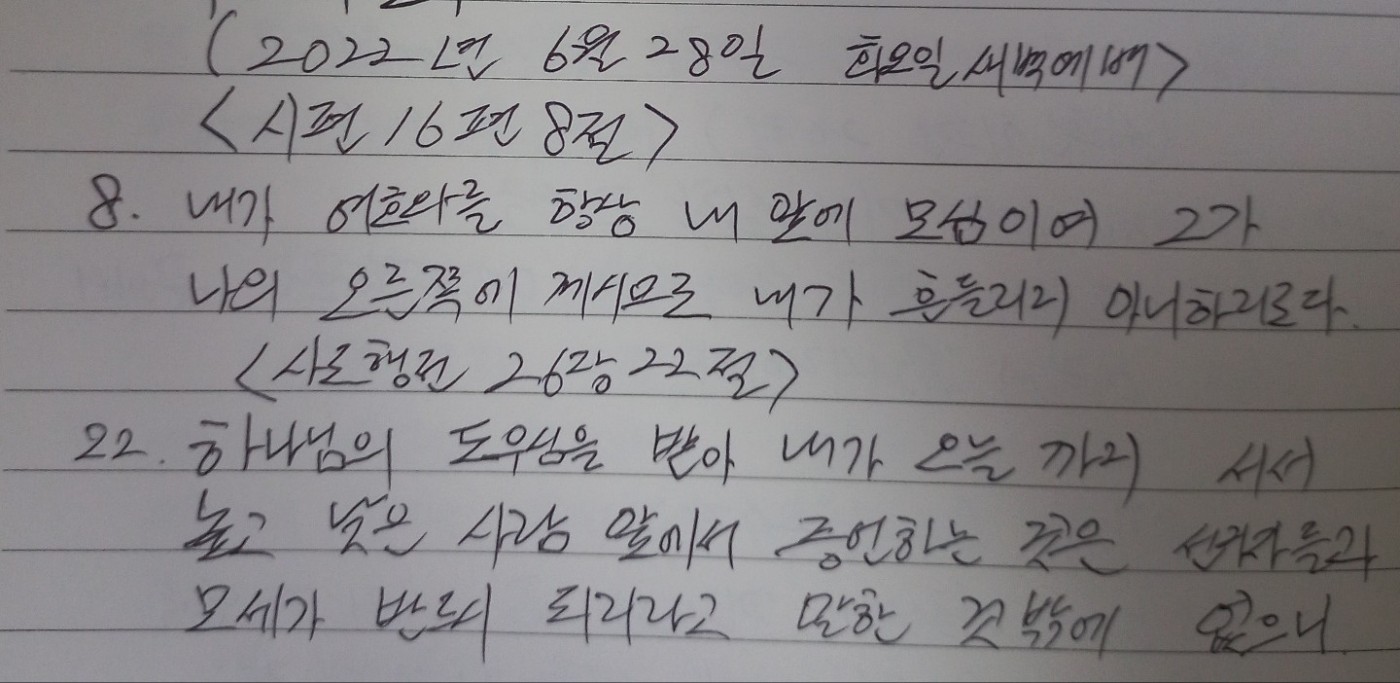 (2022년 6월 28일 화요일 새벽예배>
<시편 16편 8절>
8. 내가 여호와를 항상 내 앞에 모심이여 그가
나의 오른쪽에 계시므로 내가 흔들리지 아니하리로다.
<사도행전 26장 22절>
22. 하나님의 도우심을 받아 내가 오늘 까지 서서
높고 낮은 사람 앞에서 증언하는 것은 선지자들과
모세가 반드시 되리라고 말한 것 밖에 없으니